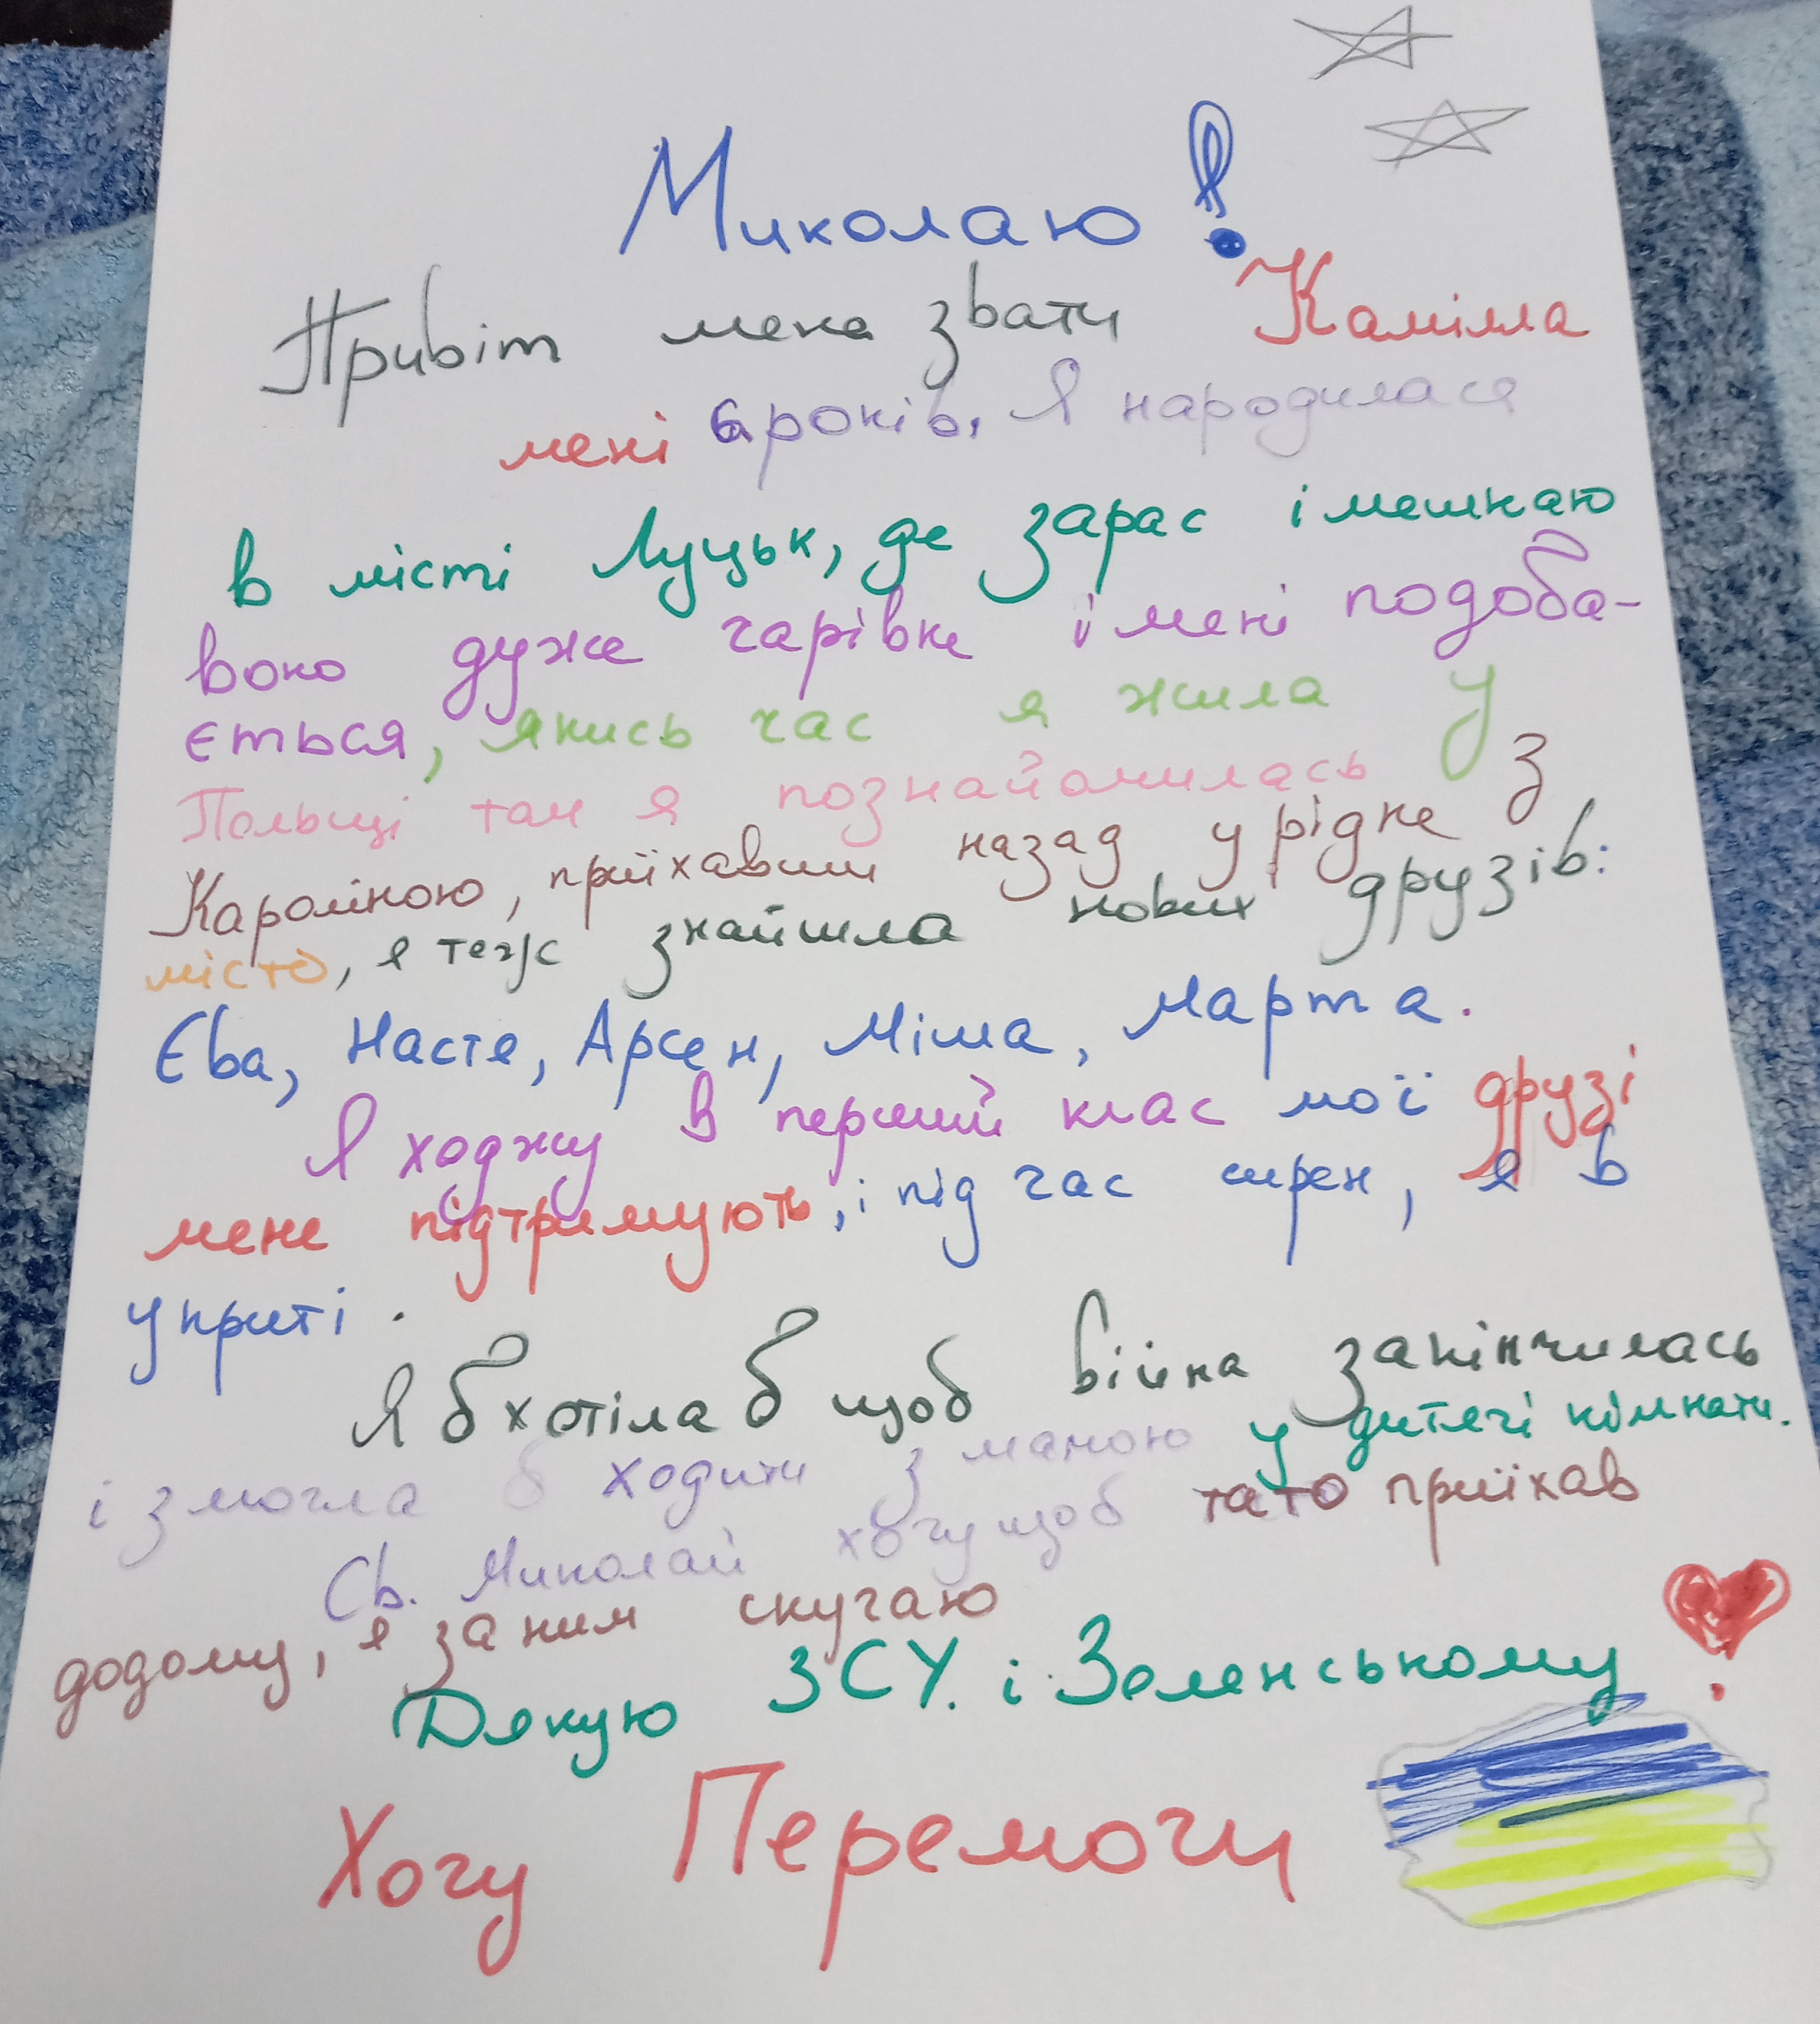 Миколаю!
Привіт мене звати Камілла
мені 6 років. Я народилася
в місті Луцьк, де зарас і мешкаю
воно дуже чарівне і мені подоба-
ється, якись час я жила у
Польщі там я познайомилась з
Кароліною, приїхавши назад у рідне
місто, я теж знайшла нових друзів:
Єва, Настя, Арсен, Міла, Марта.
Я ходжу в перший клас мої друзі
мене підтримують, і під час сирен, я в
укриті.
Я б хотіла б щоб війна закінчилась
і змогла б ходити з мамою у дитячі кімнати.
Св. Миколай хочу щоб тато приїхав
додому, я за ним скучаю
Дякую ЗСУ. і Зеленському
Хочу Перемоги